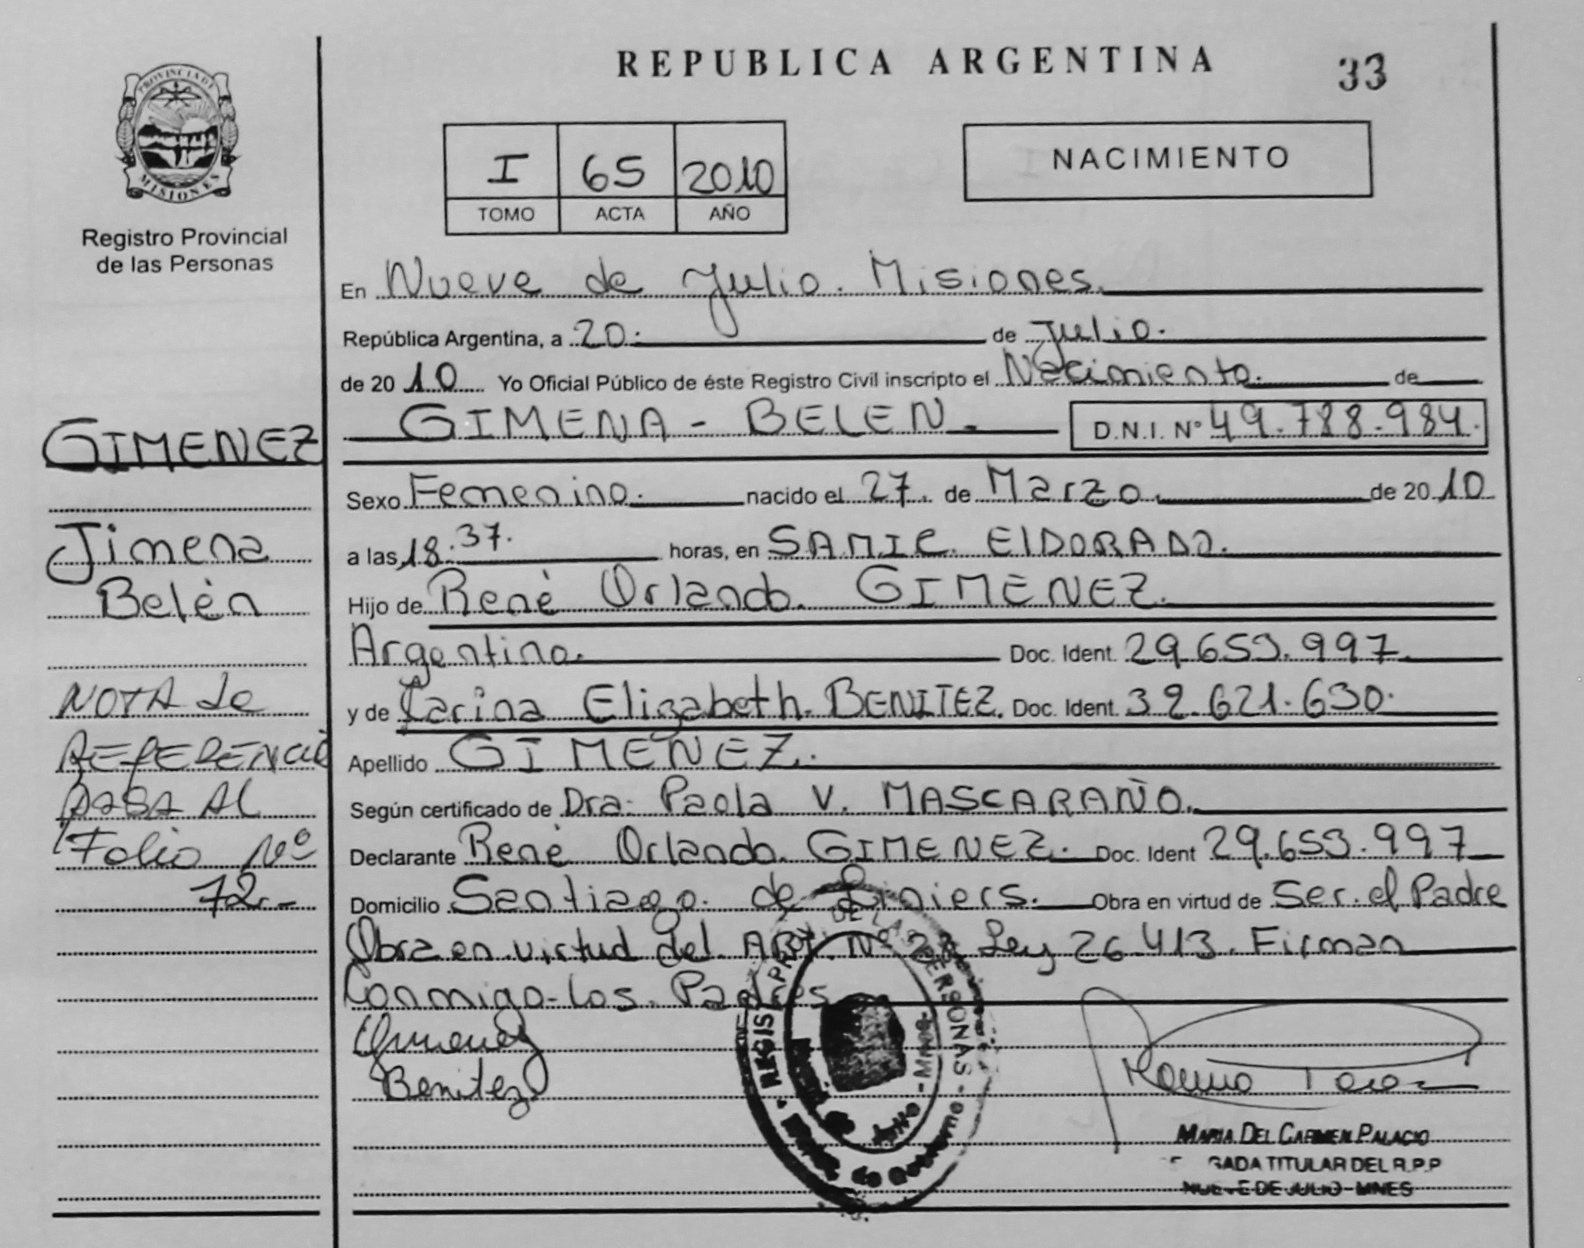 REPUBLICA ARGENTINA
33
PROVINCIA DE
MISIONES
Registro Provincial
de las Personas
I 65 2010
TOMO ACTA AÑO
NACIMIENTO
En Nueve de Julio. Misiones.
República Argentina, a 20. de Julio.
de 2010 Yo Oficial Público de éste Registro Civil inscripto el Nacimiento. de
GIMENA - BELEN. D.N.I. Nº 49.788.984.
Sexo Femenino. nacido el 27. de Marzo. de 2010
a las 18.37. horas, en SAMIC. ElDORADO.
Hijo de René Orlando. GIMENEZ.
Argentino. Doc. Ident. 29.653.997
y de Carina Elizabeth. BENITEZ. Doc. Ident. 39.621.630.
Apellido GIMENEZ.
Según certificado de Dra. Paola V. MASCARAÑO.
Declarante René Orlando. GIMENEZ. Doc. Ident 29.653.997
Domicilio Santiago. de Liniers. Obra en virtud de Ser. el Padre
Obra en virtud del. ART. Nº Ley 26.413. Firman
Conmigo - Los. Padres
Gimenez
Benitez
GIMENEZ
Jimena
Belén
NOTA de
REFERENCIA
PASA AL
Folio Nº
72.-
REGIS PROV DE LAS PERSONAS
MARIA DEL CARMEN PALACIO
GADA TITULAR DEL R.P.P
NUEVE DE JULIO - MNES